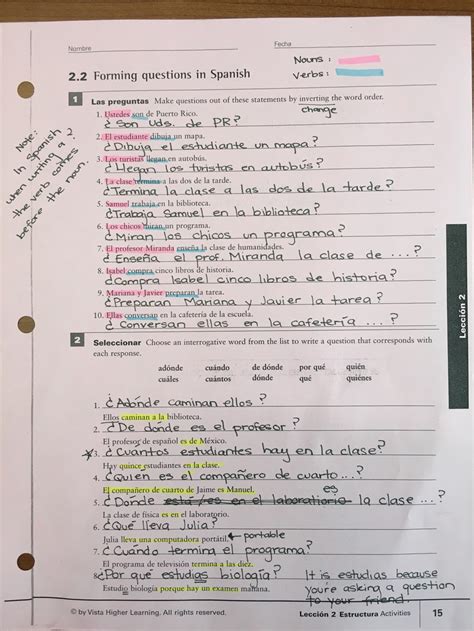 Nombre
Fecha
Nouns :
Verbs :
2.2 Forming questions in Spanish
1 Las preguntas Make questions out of these statements by inverting the word order.
change
1. Ustedes son de Puerto Rico.
¿Son Uds. de PR?
2. El estudiante dibuja un mapa.
¿Dibuja el estudiante un mapa?
3. Los turistas llegan en autobús.
¿Llegan los turistas en autobús?
4. La clase termina a las dos de la tarde.
¿Termina la clase a las dos de la tarde?
5. Samuel trabaja en la biblioteca.
¿Trabaja Samuel en la biblioteca?
6. Los chicos miran un programa.
¿Miran los chicos un programa?
7. El profesor Miranda enseña la clase de humanidades.
¿Enseña el prof. Miranda la clase de ...?
8. Isabel compra cinco libros de historia.
¿Compra Isabel cinco libros de historia?
9. Mariana y Javier preparan la tarea.
¿Preparan Mariana y Javier la tarea?
10. Ellas conversan en la cafetería de la escuela.
¿Conversan ellas en la cafetería ...?
Note:
In Spanish
when writing a ?
the verb comes
before the noun.
2 Seleccionar Choose an interrogative word from the list to write a question that corresponds with
each response.
adónde cuándo de dónde por qué quién
cuáles cuántos dónde qué quiénes
1. ¿Adónde caminan ellos?
Ellos caminan a la biblioteca.
2. ¿De dónde es el profesor?
El profesor de español es de México.
*3. ¿Cuántos estudiantes hay en la clase?
Hay quince estudiantes en la clase.
4. ¿Quién es el compañero de cuarto ...?
El compañero de cuarto de Jaime es Manuel.
es
5. ¿Dónde está/es en el laboratorio la clase ...?
La clase de física es en el laboratorio.
6. ¿Qué lleva Julia?
Julia lleva una computadora portátil. ← portable
7. ¿Cuándo termina el programa?
El programa de televisión termina a las diez.
8. ¿Por qué estudias biología?
Estudio biología porque hay un examen mañana.
It is estudias because
you're asking a question
to your friend!
Lección 2
© by Vista Higher Learning. All rights reserved.
Lección 2 Estructura Activities 15